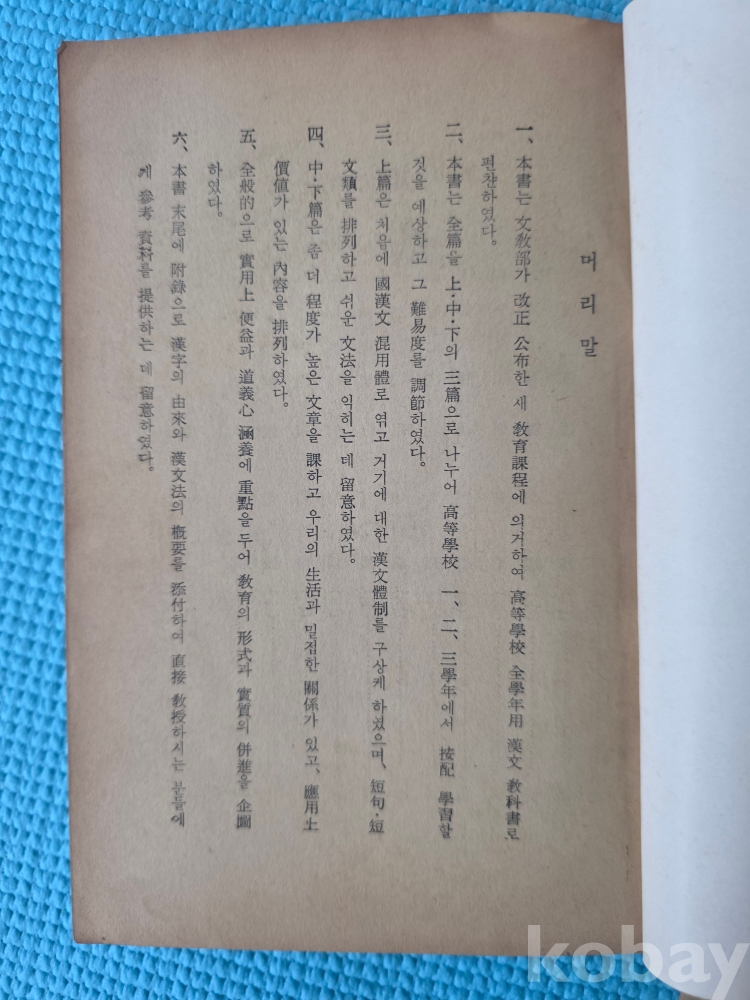 머리말
一、本書는 文敎部가 改正 公布한 새 敎育課程에 의거하여 高等學校 全學年用 漢文 敎科書로
편찬하였다。
二、本書는 全篇을 上·中·下의 三篇으로 나누어 高等學校 一、二、三學年에서 按配 學習할
것을 예상하고 그 難易度를 調節하였다。
三、上篇은 처음에 國漢文 混用體로 엮고 거기에 대한 漢文體制를 구상케 하였으며、短句·短
文類를 排列하고 쉬운 文法을 익히는 데 留意하였다。
四、中·下篇은 좀 더 程度가 높은 文章을 課하고 우리의 生活과 밀접한 關係가 있고、應用上
價値가 있는 內容을 排列하였다。
五、全般的으로 實用上 便益과 道義心 涵養에 重點을 두어 敎育의 形式과 實質의 併進을 企圖
하였다。
六、本書 末尾에 附錄으로 漢字의 由來와 漢文法의 槪要를 添付하여 直接 敎授하시는 분들에
게 參考 資料를 提供하는 데 留意하였다。
kobay